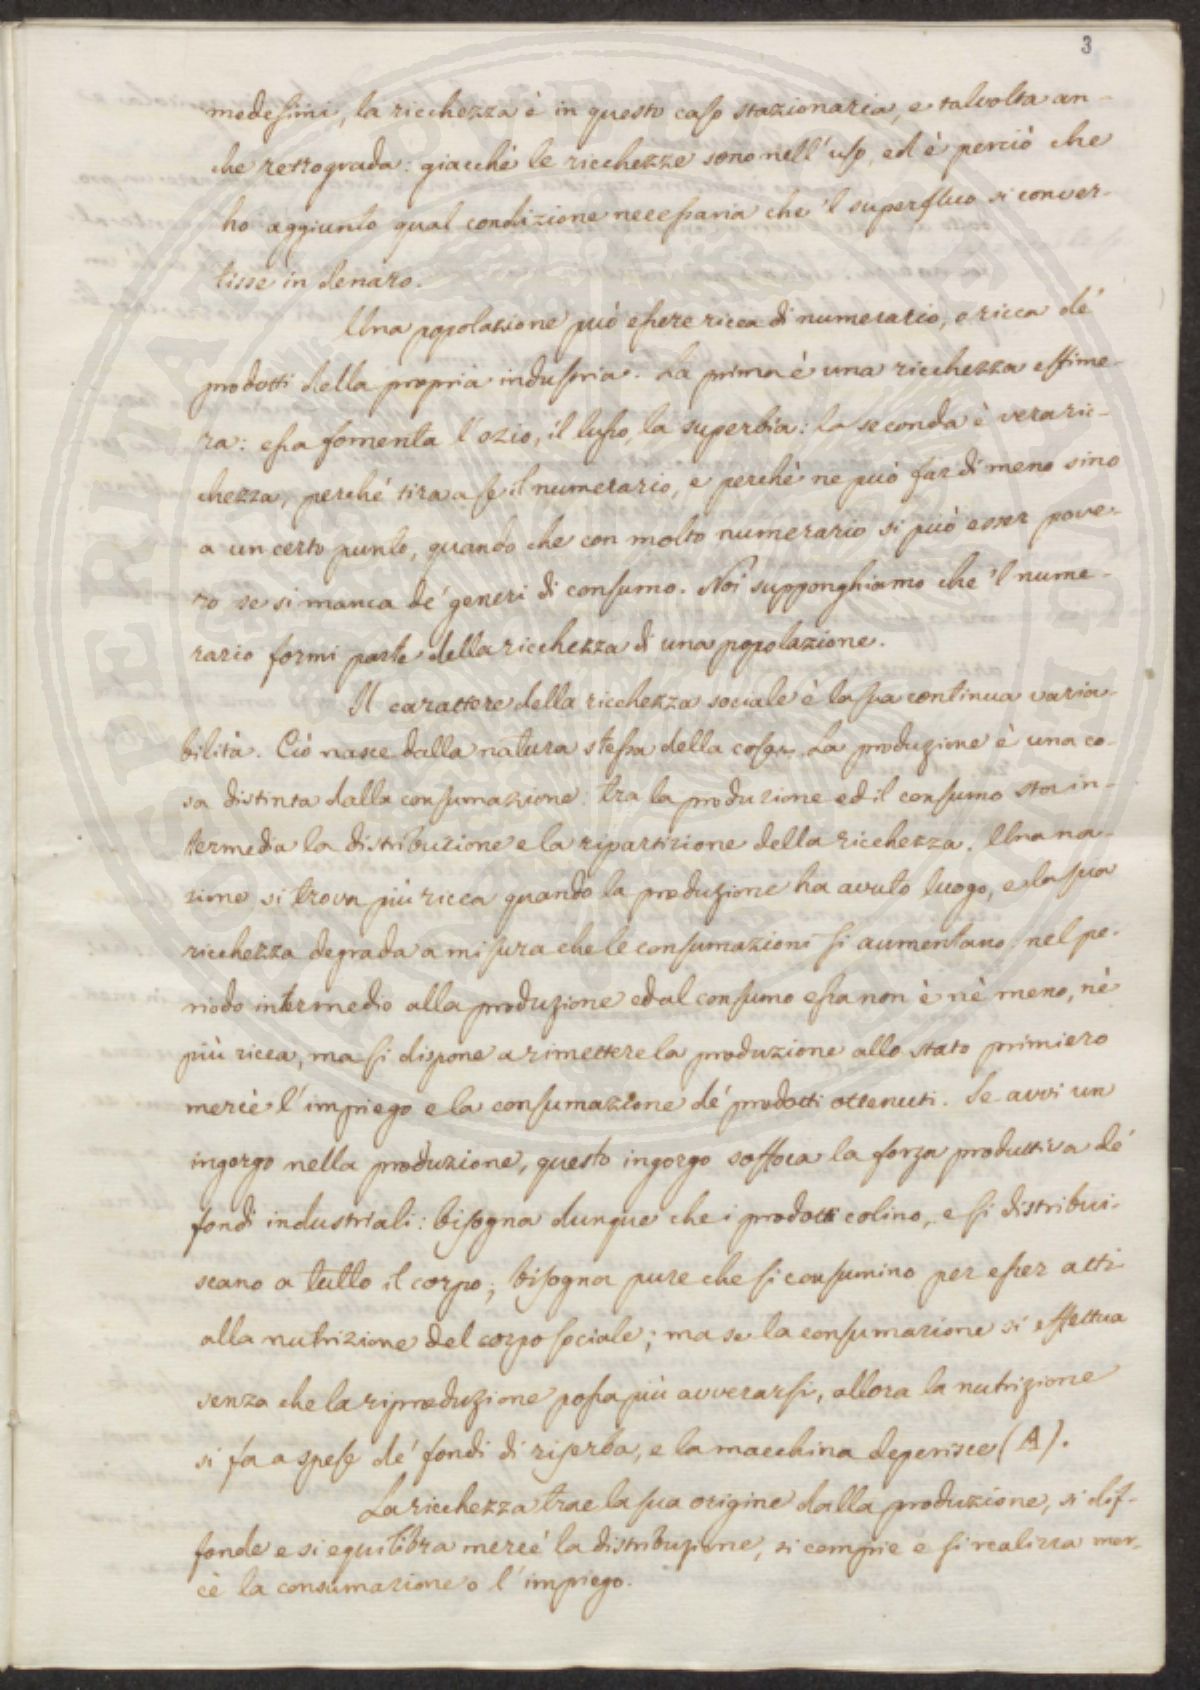 3
modesimi, la ricchezza è in questo caso stazionaria, e talvolta an-
che retrograda: giacchè le ricchezze sono nell'uso, ed è perciò che
ho aggiunto qual condizione necessaria che 'l superfluo si conver-
tisse in denaro.
Una popolazione può essere ricca di numerario, o ricca de'
prodotti della propria industria. La prima è una ricchezza effime-
ra: essa fomenta l'ozio, il lusso, la superbia: la seconda è vera ric-
chezza, perchè tira a se il numerario, e perchè ne può far di meno sino
a un certo punto, quando che con molto numerario si può esser pove-
ro se si manca de' generi di consumo. Noi supponghiamo che 'l nume-
rario formi parte della ricchezza di una popolazione.
Il carattere della ricchezza sociale è la sua continua varia-
bilità. Ciò nasce dalla natura stessa della cosa. La produzione è una co-
sa distinta dalla consumazione: tra la produzione ed il consumo sta in-
termedia la distribuzione e la ripartizione della ricchezza. Una na-
zione si trova più ricca quando la produzione ha avuto luogo, e la sua
ricchezza degrada a misura che le consumazioni si aumentano: nel pe-
riodo intermedio alla produzione ed al consumo essa non è nè meno, nè
più ricca, ma si dispone a rimettere la produzione allo stato primiero
mercè l'impiego e la consumazione de' prodotti ottenuti. Se avvi un
ingorgo nella produzione, questo ingorgo soffoca la forza produttiva de'
fondi industriali: bisogna dunque che i prodotti colino, e si distribui-
scano a tutto il corpo; bisogna pure che si consumino per esser atti
alla nutrizione del corpo sociale; ma se la consumazione si effettua
senza che la riproduzione possa più avverarsi, allora la nutrizione
si fa a spese de' fondi di riserba, e la macchina deperisce (A).
La ricchezza trae la sua origine dalla produzione, si dif-
fonde e si equilibra mercè la distribuzione, si compie e si realizza mer-
cè la consumazione o l'impiego.